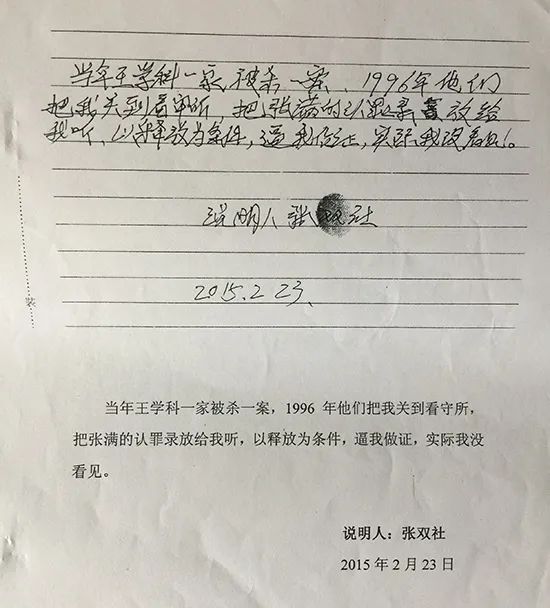 当年王学科一家被杀一案、1996年他们
把我关到看守所 把张满的认罪录音放给
我听、以释放为条件,逼我作证,实际我没看见。
说明人 张双社
2015.2 23、
装
当年王学科一家被杀一案，1996 年他们把我关到看守所，
把张满的认罪录放给我听，以释放为条件，逼我做证，实际我没
看见。
说明人：张双社
2015 年 2 月 23 日